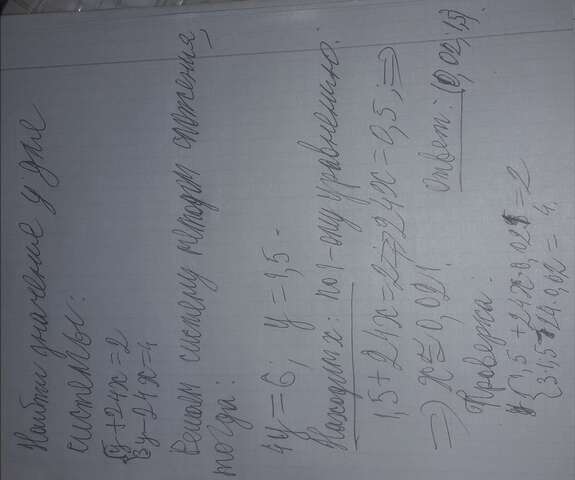 Найти значение у для
системы:
{ y + 24x = 2
{ 3y - 24x = 4
Решаем систему методом сложения,
тогда:
4y = 6; y = 1,5 -
Находим x: по 1-ому уравнению:
1,5 + 24x = 2; => 24x = 0,5; =>
=> x ≈ 0,021.
ответ: (0,02; 1,5)
Проверка:
{ 1,5 + 24x0,021 = 2
{ 3·1,5 - 24·0,02 = 4.